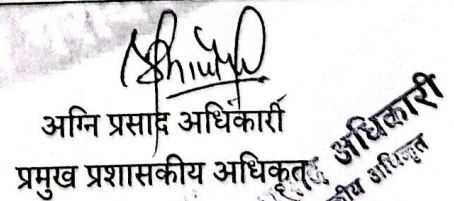 अग्नि प्रसाद अधिकारी
प्रमुख प्रशासकीय अधिकृत
अधिकारी